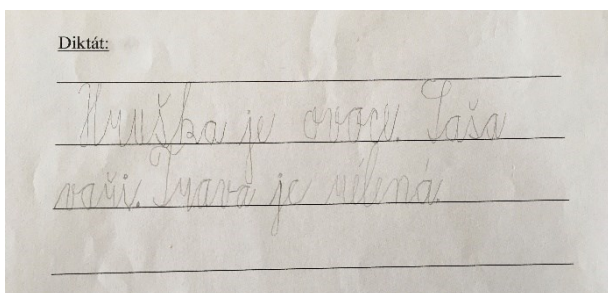 Diktát:
Hruška je ovoce. Saša
vaří. Trava je zélená.